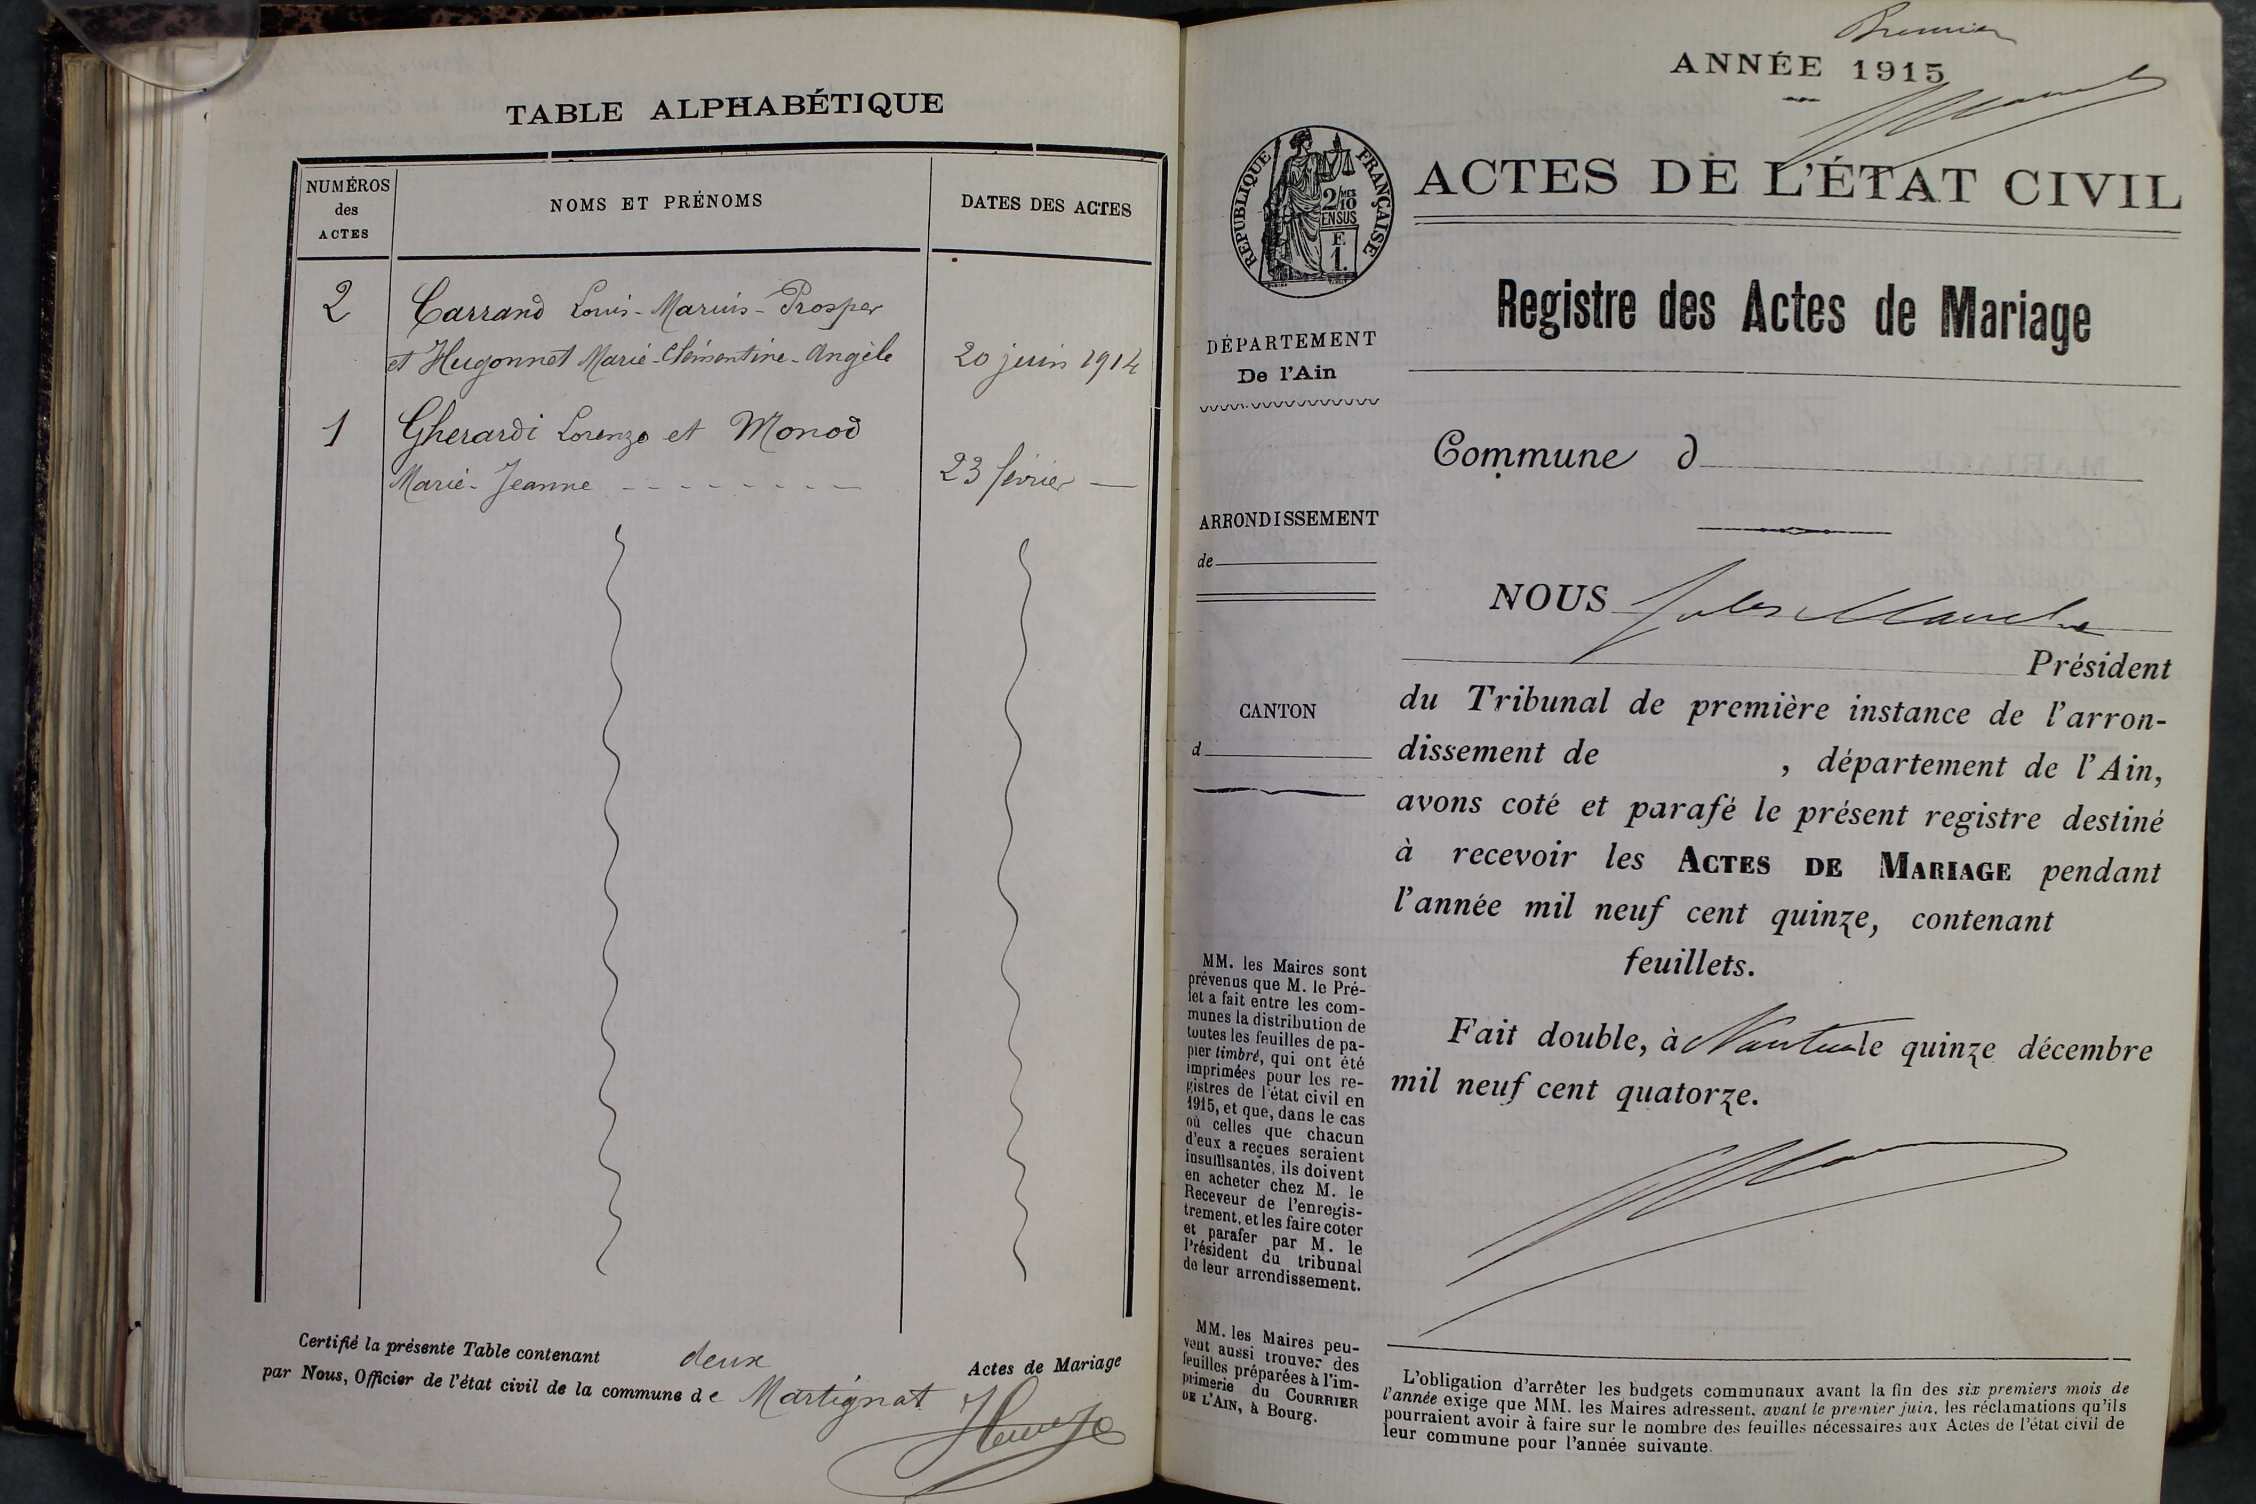 TABLE ALPHABÉTIQUE
NUMÉROS
des
ACTES
NOMS ET PRÉNOMS
DATES DES ACTES
2 Carrand Louis-Marius-Prosper
et Hugonnet Marie-Clémentine-Angèle 20 juin 1914
1 Gherardi Lorenzo et Monod
Marie-Jeanne - - - - - - - - 23 février —
Certifié la présente Table contenant deux Actes de Mariage
par Nous, Officier de l'état civil de la commune de Martignat
Premier
ANNÉE 1915
RÉPUBLIQUE FRANÇAISE
2/10 MES
EN SUS
E
1.
ACTES DE L'ÉTAT CIVIL
Registre des Actes de Mariage
DÉPARTEMENT
De l'Ain
Commune d
ARRONDISSEMENT
de
CANTON
d
NOUS Jules
Président
du Tribunal de première instance de l'arron-
dissement de , département de l'Ain,
avons coté et parafé le présent registre destiné
à recevoir les ACTES DE MARIAGE pendant
l'année mil neuf cent quinze, contenant
feuillets.
Fait double, à Nantua le quinze décembre
mil neuf cent quatorze.
MM. les Maires sont
prévenus que M. le Pré-
fet a fait entre les com-
munes la distribution de
toutes les feuilles de pa-
pier timbré, qui ont été
imprimées pour les re-
gistres de l'état civil en
1915, et que, dans le cas
où celles que chacun
d'eux a reçues seraient
insuffisantes, ils doivent
en acheter chez M. le
Receveur de l'enregis-
trement, et les faire coter
et parafer par M. le
Président du tribunal
de leur arrondissement.
MM. les Maires peu-
vent aussi trouver des
feuilles préparées à l'im-
primerie du COURRIER
DE L'AIN, à Bourg.
L'obligation d'arrêter les budgets communaux avant la fin des six premiers mois de
l'année exige que MM. les Maires adressent, avant le premier juin, les réclamations qu'ils
pourraient avoir à faire sur le nombre des feuilles nécessaires aux Actes de l'état civil de
leur commune pour l'année suivante.